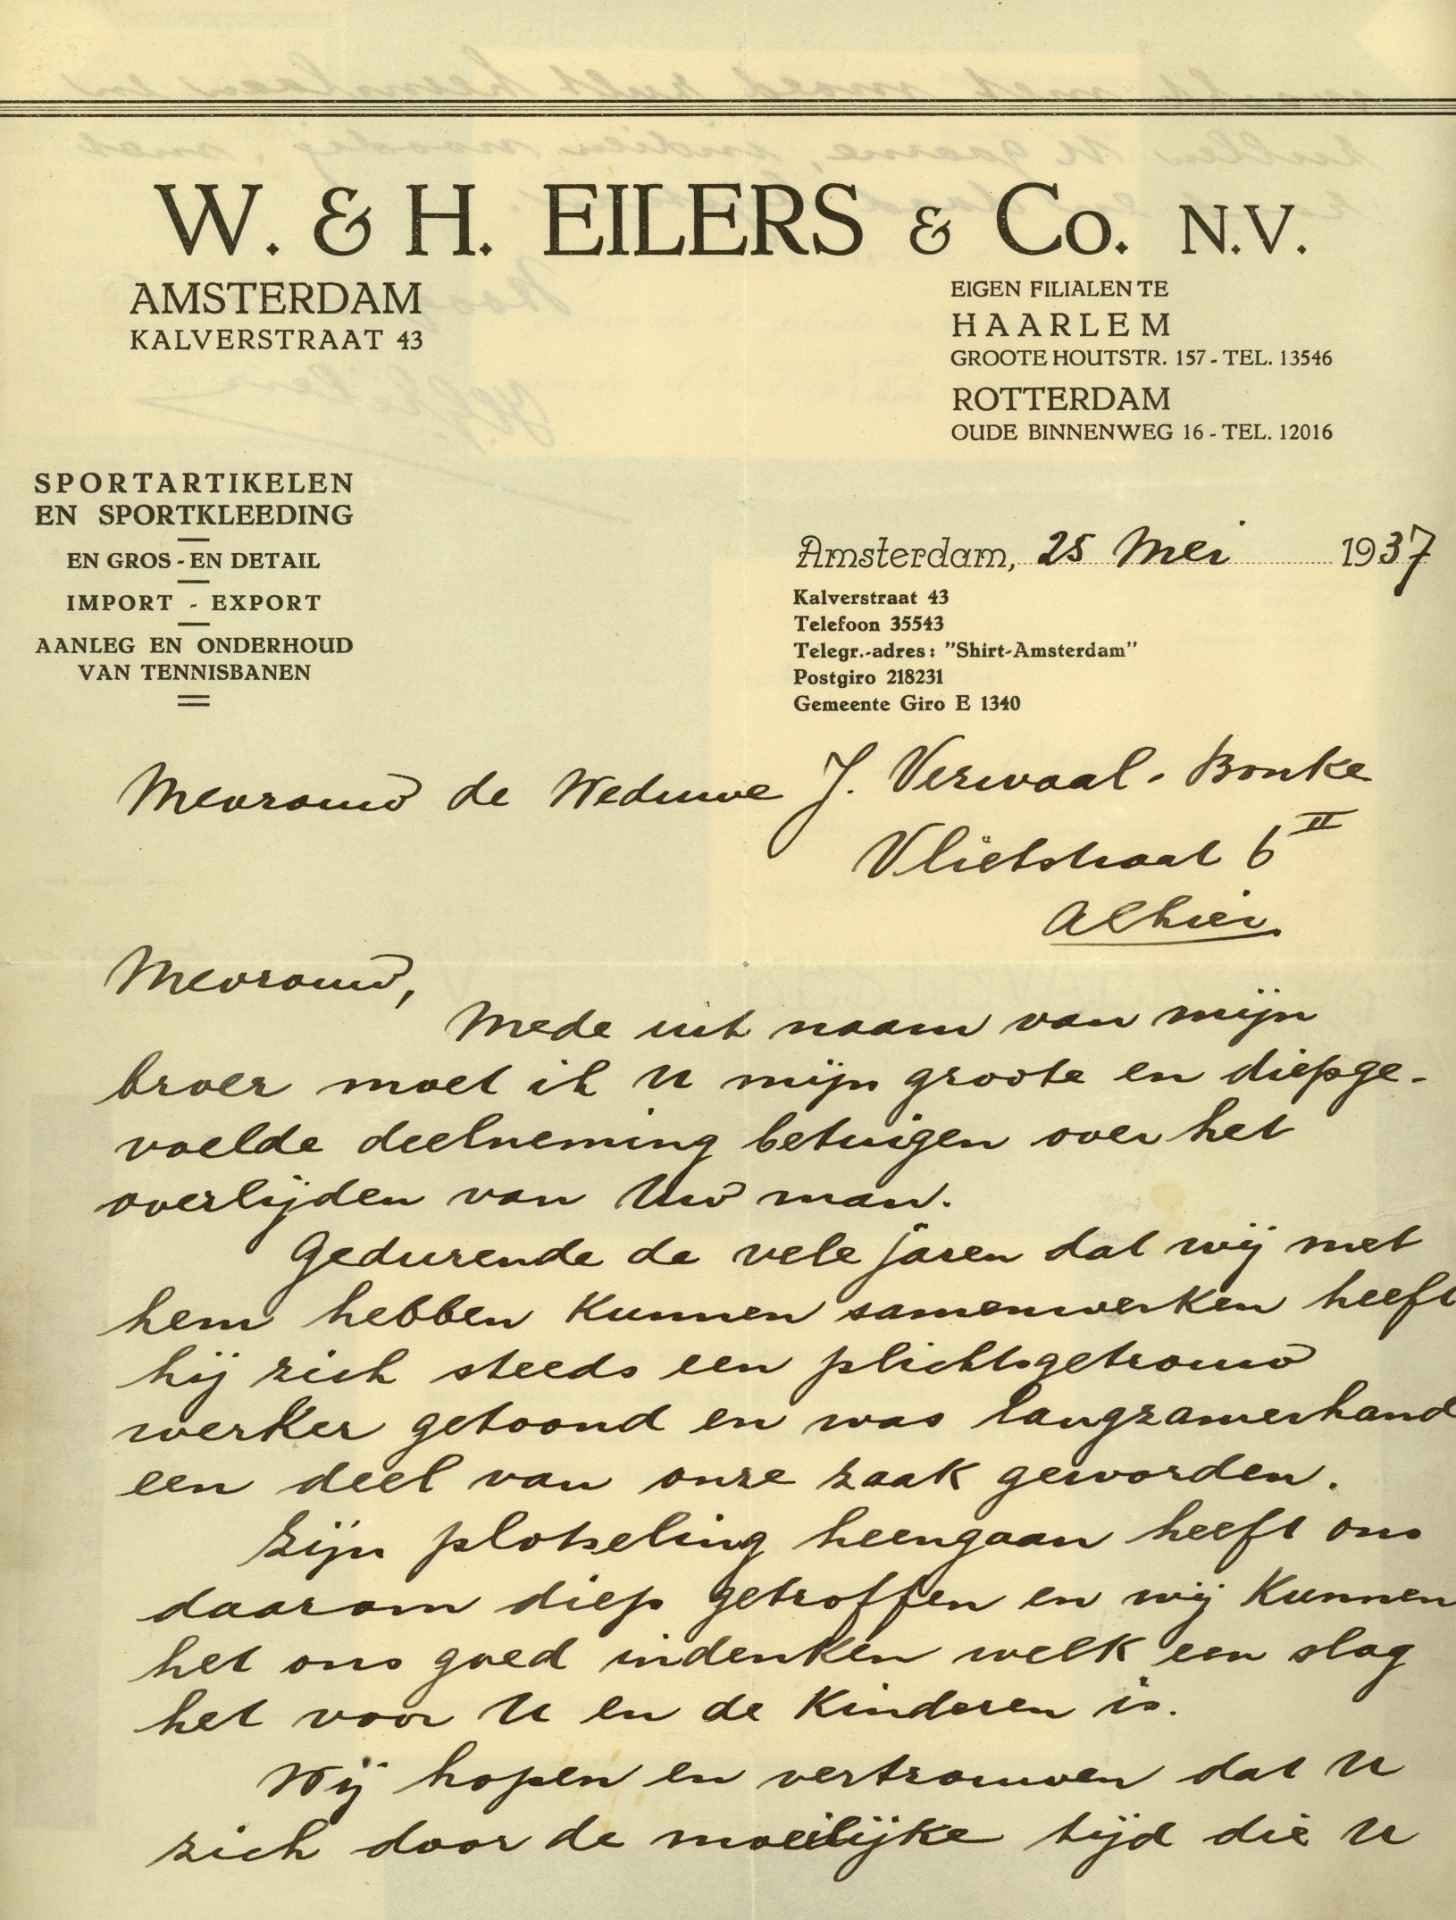 W. & H. EILERS & Co. N.V.
AMSTERDAM
KALVERSTRAAT 43
EIGEN FILIALEN TE
HAARLEM
GROOTE HOUTSTR. 157 - TEL. 13546
ROTTERDAM
OUDE BINNENWEG 16 - TEL. 12016
SPORTARTIKELEN
EN SPORTKLEEDING
EN GROS - EN DETAIL
IMPORT - EXPORT
AANLEG EN ONDERHOUD
VAN TENNISBANEN
Amsterdam, 25 Mei 1937
Kalverstraat 43
Telefoon 35543
Telegr.-adres: "Shirt-Amsterdam"
Postgiro 218231
Gemeente Giro E 1340
Mevrouw de Weduwe J. Verwaal - Bonke
Vlietstraat 6 II
Alhier.
Mevrouw,
Mede uit naam van mijn
broer moet ik U mijn groote en diepge-
voelde deelneming betuigen over het
overlijden van Uw man.
Gedurende de vele jaren dat wij met
hem hebben kunnen samenwerken heeft
hij zich steeds een plichtsgetrouw
werker getoond en was langzamerhand
een deel van onze zaak geworden.
Zijn plotseling heengaan heeft ons
daarom diep getroffen en wij kunnen
het ons goed indenken welk een slag
het voor U en de Kinderen is.
Wij hopen en vertrouwen dat U
zich door de moeilijke tijd die U